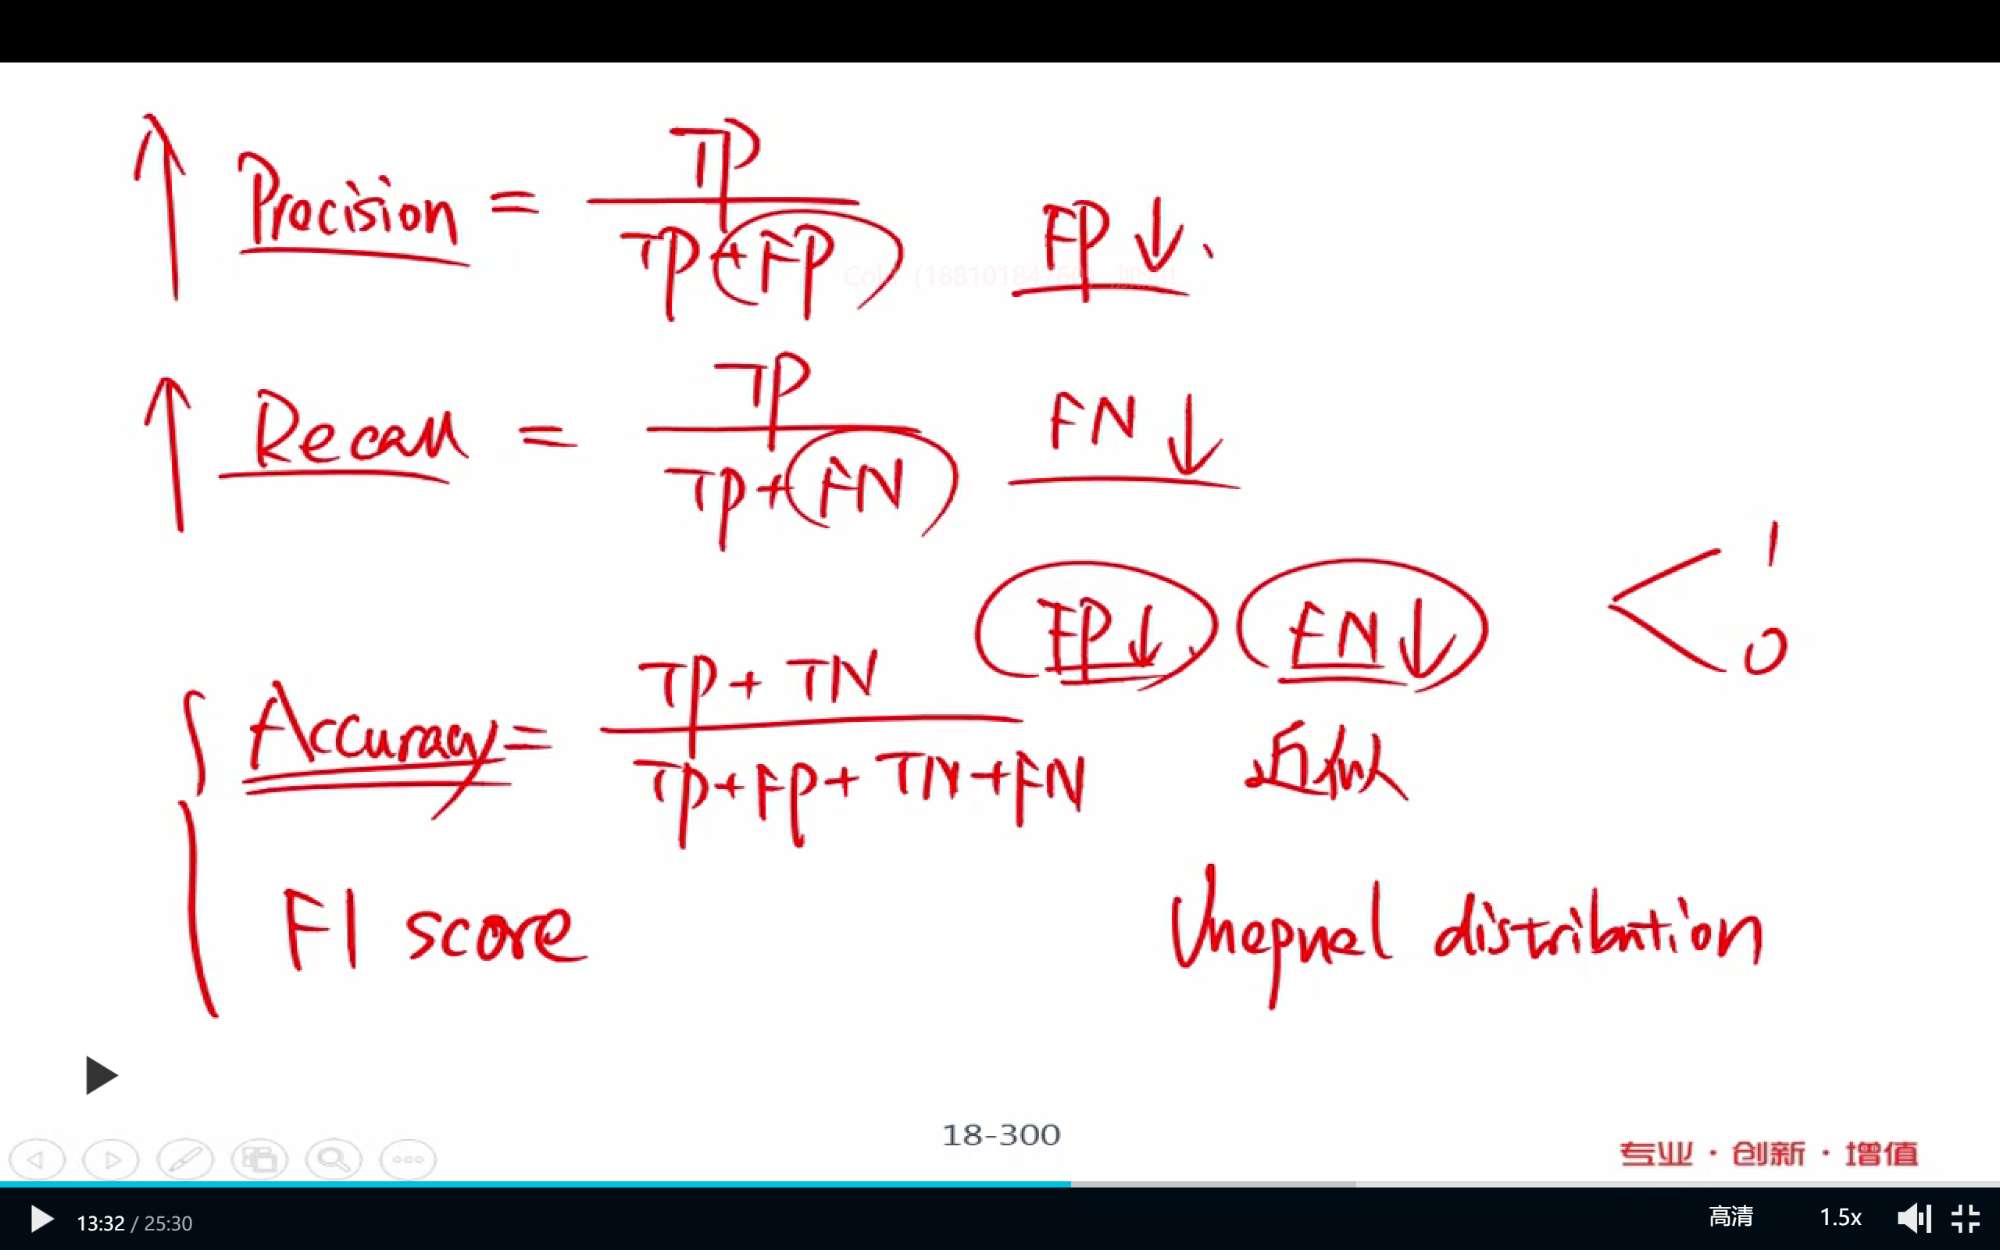 ↑ Precision = TP / TP + FP FP ↓
↑ Recall = TP / TP + FN FN ↓
FP ↓ FN ↓ < 1 0
Accuracy = TP + TN / TP + FP + TN + FN 近似
F1 score Unequal distribution
18-300
专业 · 创新 · 增值
13:32 / 25:30 高清 1.5x